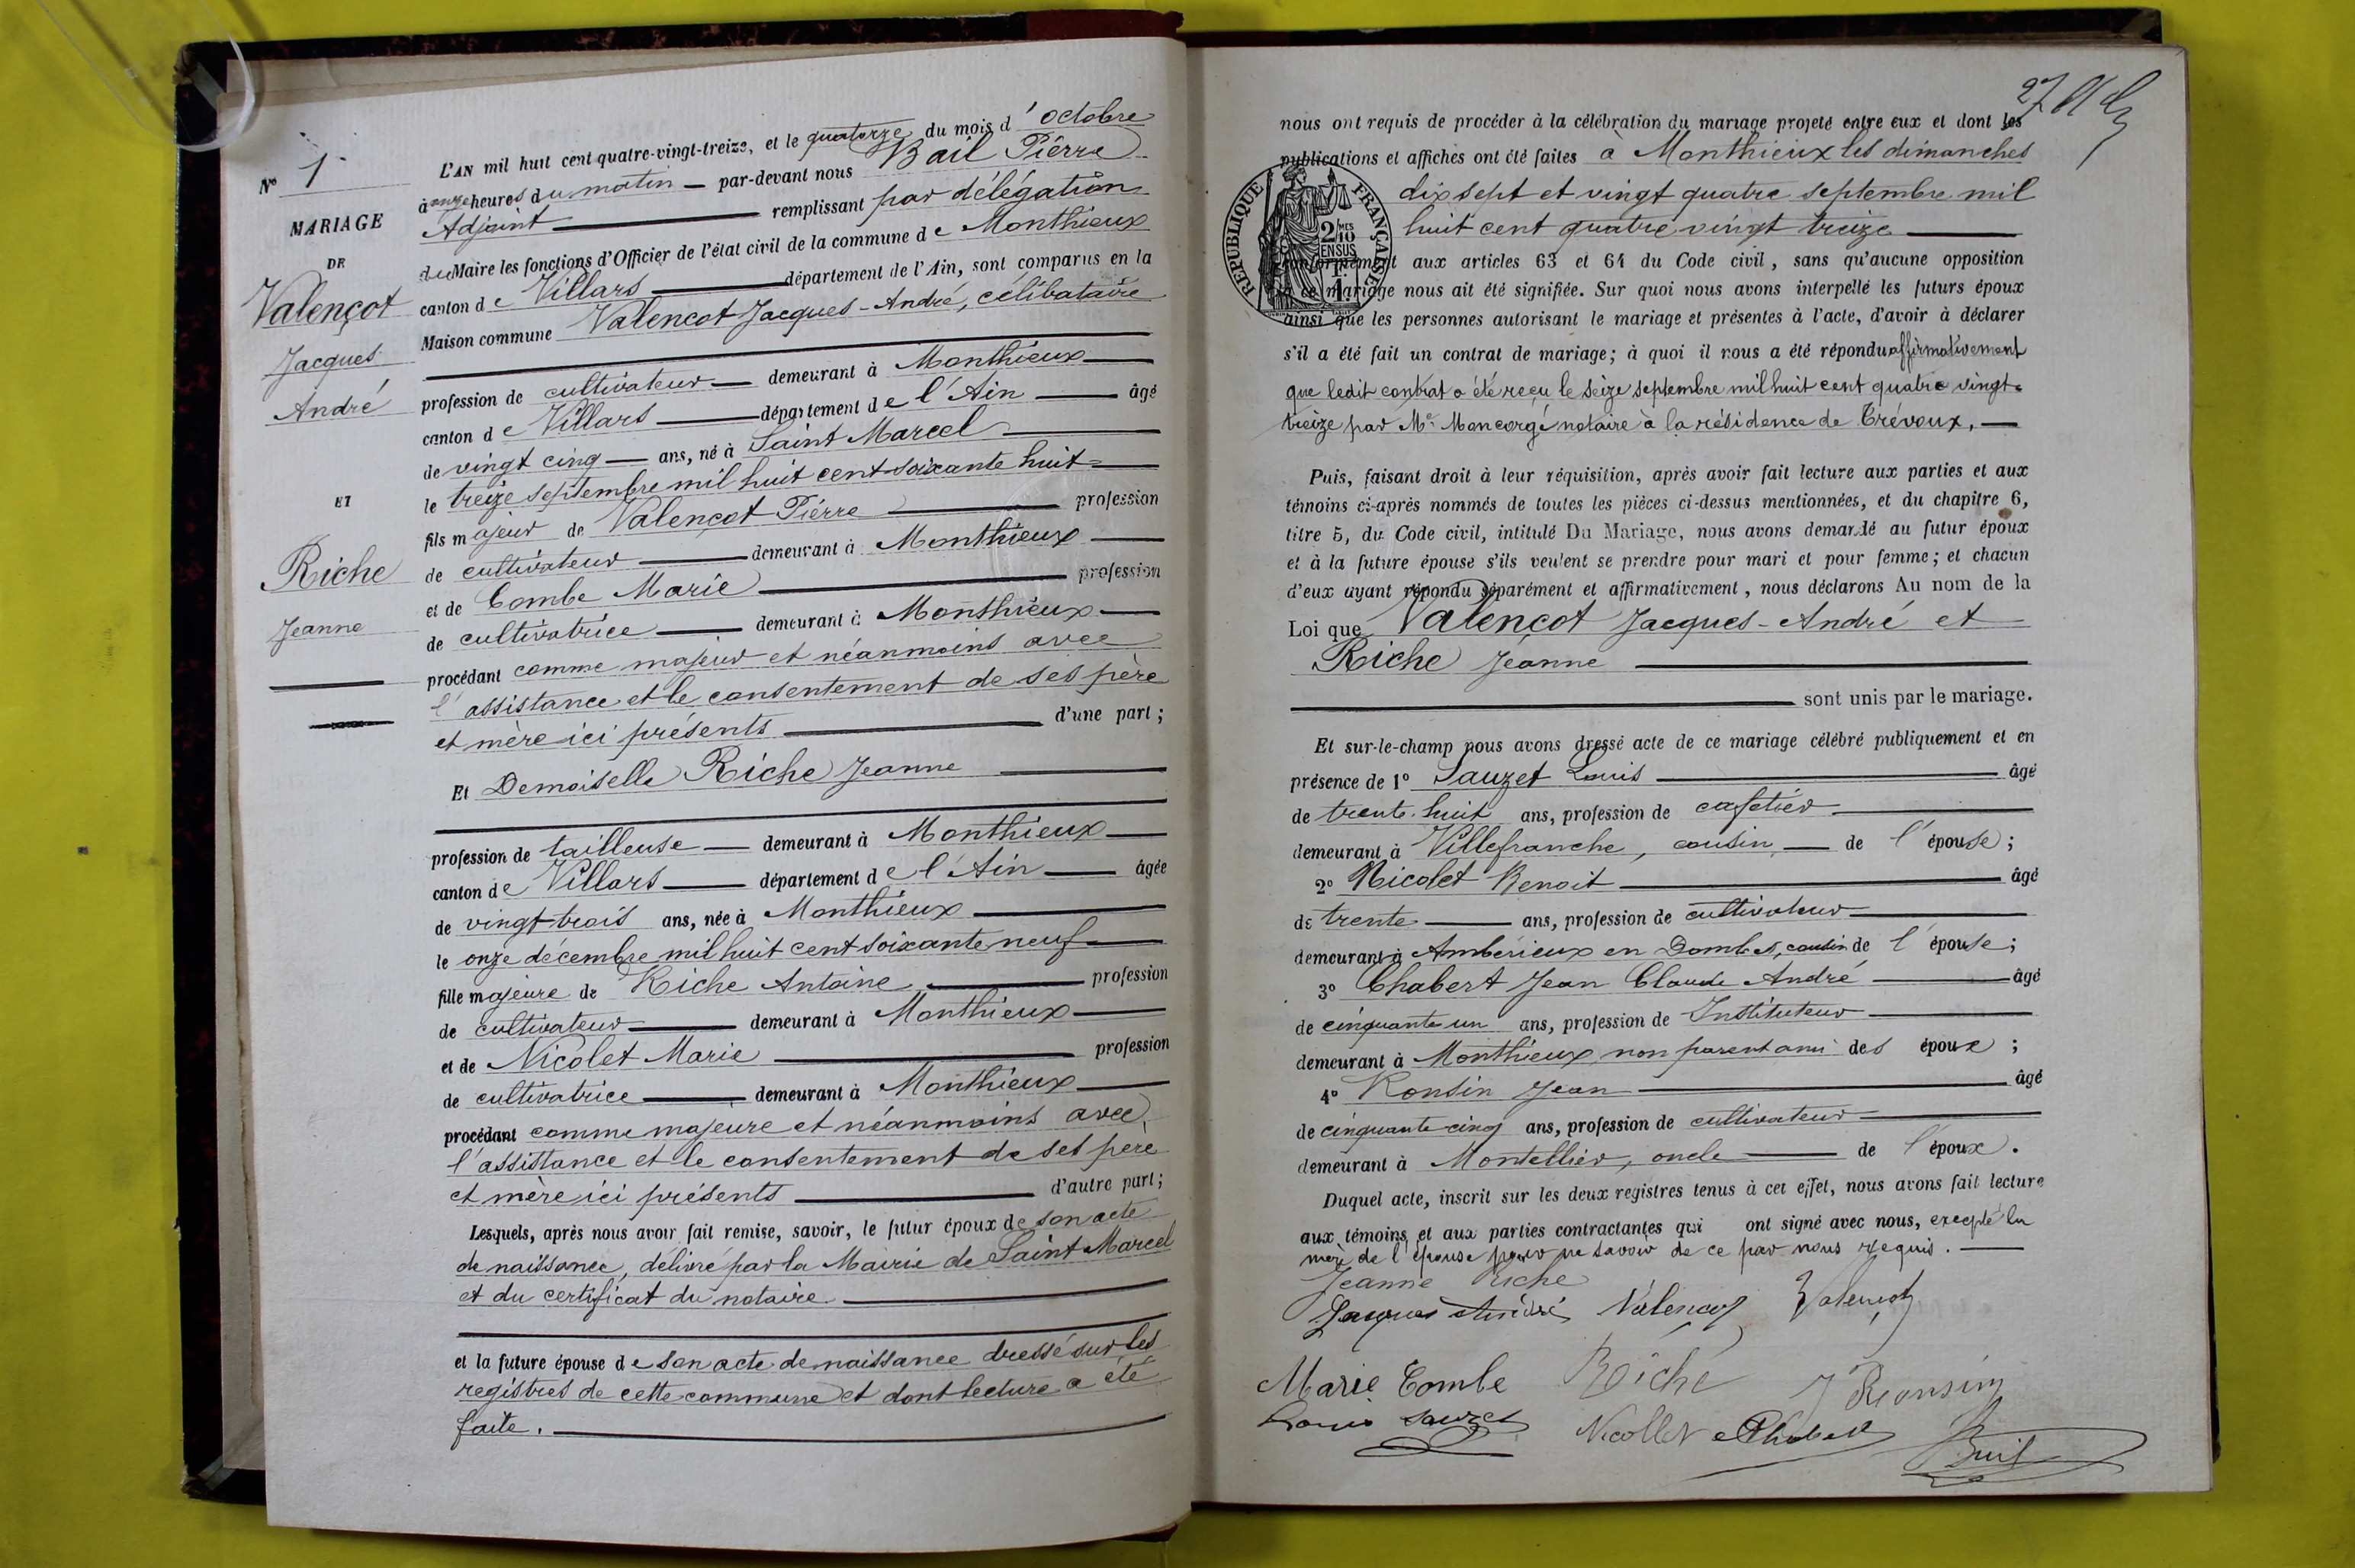 N° 1
MARIAGE
DE
Valençot
Jacques
André
ET
Riche
Jeanne
L'AN mil huit cent quatre-vingt-treize, et le quatorze du mois d'octobre
à onze heures du matin — par-devant nous Bail Pierre
Adjoint — remplissant par délégation
du Maire les fonctions d'Officier de l'état civil de la commune de Monthieux
canton de Villars — département de l'Ain, sont comparus en la
Maison commune Valençot Jacques-André, célibataire
profession de cultivateur — demeurant à Monthieux —
canton de Villars — département de l'Ain — âgé
de vingt cinq — ans, né à Saint Marcel —
le treize septembre mil huit cent soixante huit —
fils majeur de Valençot Pierre — profession
de cultivateur — demeurant à Monthieux —
et de Combe Marie — profession
de cultivatrice — demeurant à Monthieux —
procédant comme majeur et néanmoins avec
l'assistance et le consentement de ses père
et mère ici présents — d'une part ;
Et Demoiselle Riche Jeanne —
profession de tailleuse — demeurant à Monthieux —
canton de Villars — département de l'Ain — âgée
de vingt-trois ans, née à Monthieux —
le onze décembre mil huit cent soixante neuf —
fille majeure de Riche Antoine — profession
de cultivateur — demeurant à Monthieux —
et de Nicolet Marie — profession
de cultivatrice — demeurant à Monthieux —
procédant comme majeure et néanmoins avec
l'assistance et le consentement de ses père
et mère ici présents — d'autre part ;
Lesquels, après nous avoir fait remise, savoir, le futur époux de son acte
de naissance, délivré par la Mairie de Saint Marcel
et du certificat du notaire —
et la future épouse de son acte de naissance dressé sur les
registres de cette commune et dont lecture a été
faite. —
27
nous ont requis de procéder à la célébration du mariage projeté entre eux et dont les
publications et affiches ont été faites à Monthieux les dimanches
dix sept et vingt quatre septembre mil
huit cent quatre vingt treize —
RÉPUBLIQUE FRANÇAISE
2 MES 10
EN SUS
conformément aux articles 63 et 64 du Code civil, sans qu'aucune opposition
à ce mariage nous ait été signifiée. Sur quoi nous avons interpellé les futurs époux
ainsi que les personnes autorisant le mariage et présentes à l'acte, d'avoir à déclarer
s'il a été fait un contrat de mariage; à quoi il nous a été répondu affirmativement
que ledit contrat a été reçu le seize septembre mil huit cent quatre vingt-
treize par Me Moncorgé notaire à la résidence de Trévoux, —
Puis, faisant droit à leur réquisition, après avoir fait lecture aux parties et aux
témoins ci-après nommés de toutes les pièces ci-dessus mentionnées, et du chapitre 6,
titre 5, du Code civil, intitulé Du Mariage, nous avons demandé au futur époux
et à la future épouse s'ils veulent se prendre pour mari et pour femme ; et chacun
d'eux ayant répondu séparément et affirmativement, nous déclarons Au nom de la
Loi que Valençot Jacques-André et
Riche Jeanne —
— sont unis par le mariage.
Et sur-le-champ nous avons dressé acte de ce mariage célébré publiquement et en
présence de 1° Sauzet Louis — âgé
de trente-huit ans, profession de cafetier —
demeurant à Villefranche, cousin — de l'épouse ;
2° Nicolet Benoit — âgé
de trente — ans, profession de cultivateur —
demeurant à Ambérieux en Dombes, cousin de l'épouse ;
3° Chabert Jean Claude André — âgé
de cinquante un ans, profession de Instituteur —
demeurant à Monthieux non parent ami des époux ;
4° Ronsin Jean — âgé
de cinquante cinq ans, profession de cultivateur —
demeurant à Montellier, oncle — de l'époux.
Duquel acte, inscrit sur les deux registres tenus à cet effet, nous avons fait lecture
aux témoins et aux parties contractantes qui ont signé avec nous, excepté la
mère de l'épouse pour ne savoir de ce par nous requis. —
Jeanne Riche
Jacques André Valençot Valençot
Marie Combe Riche J Ronsin
Louis Sauzet Nicollet Chabert Bail